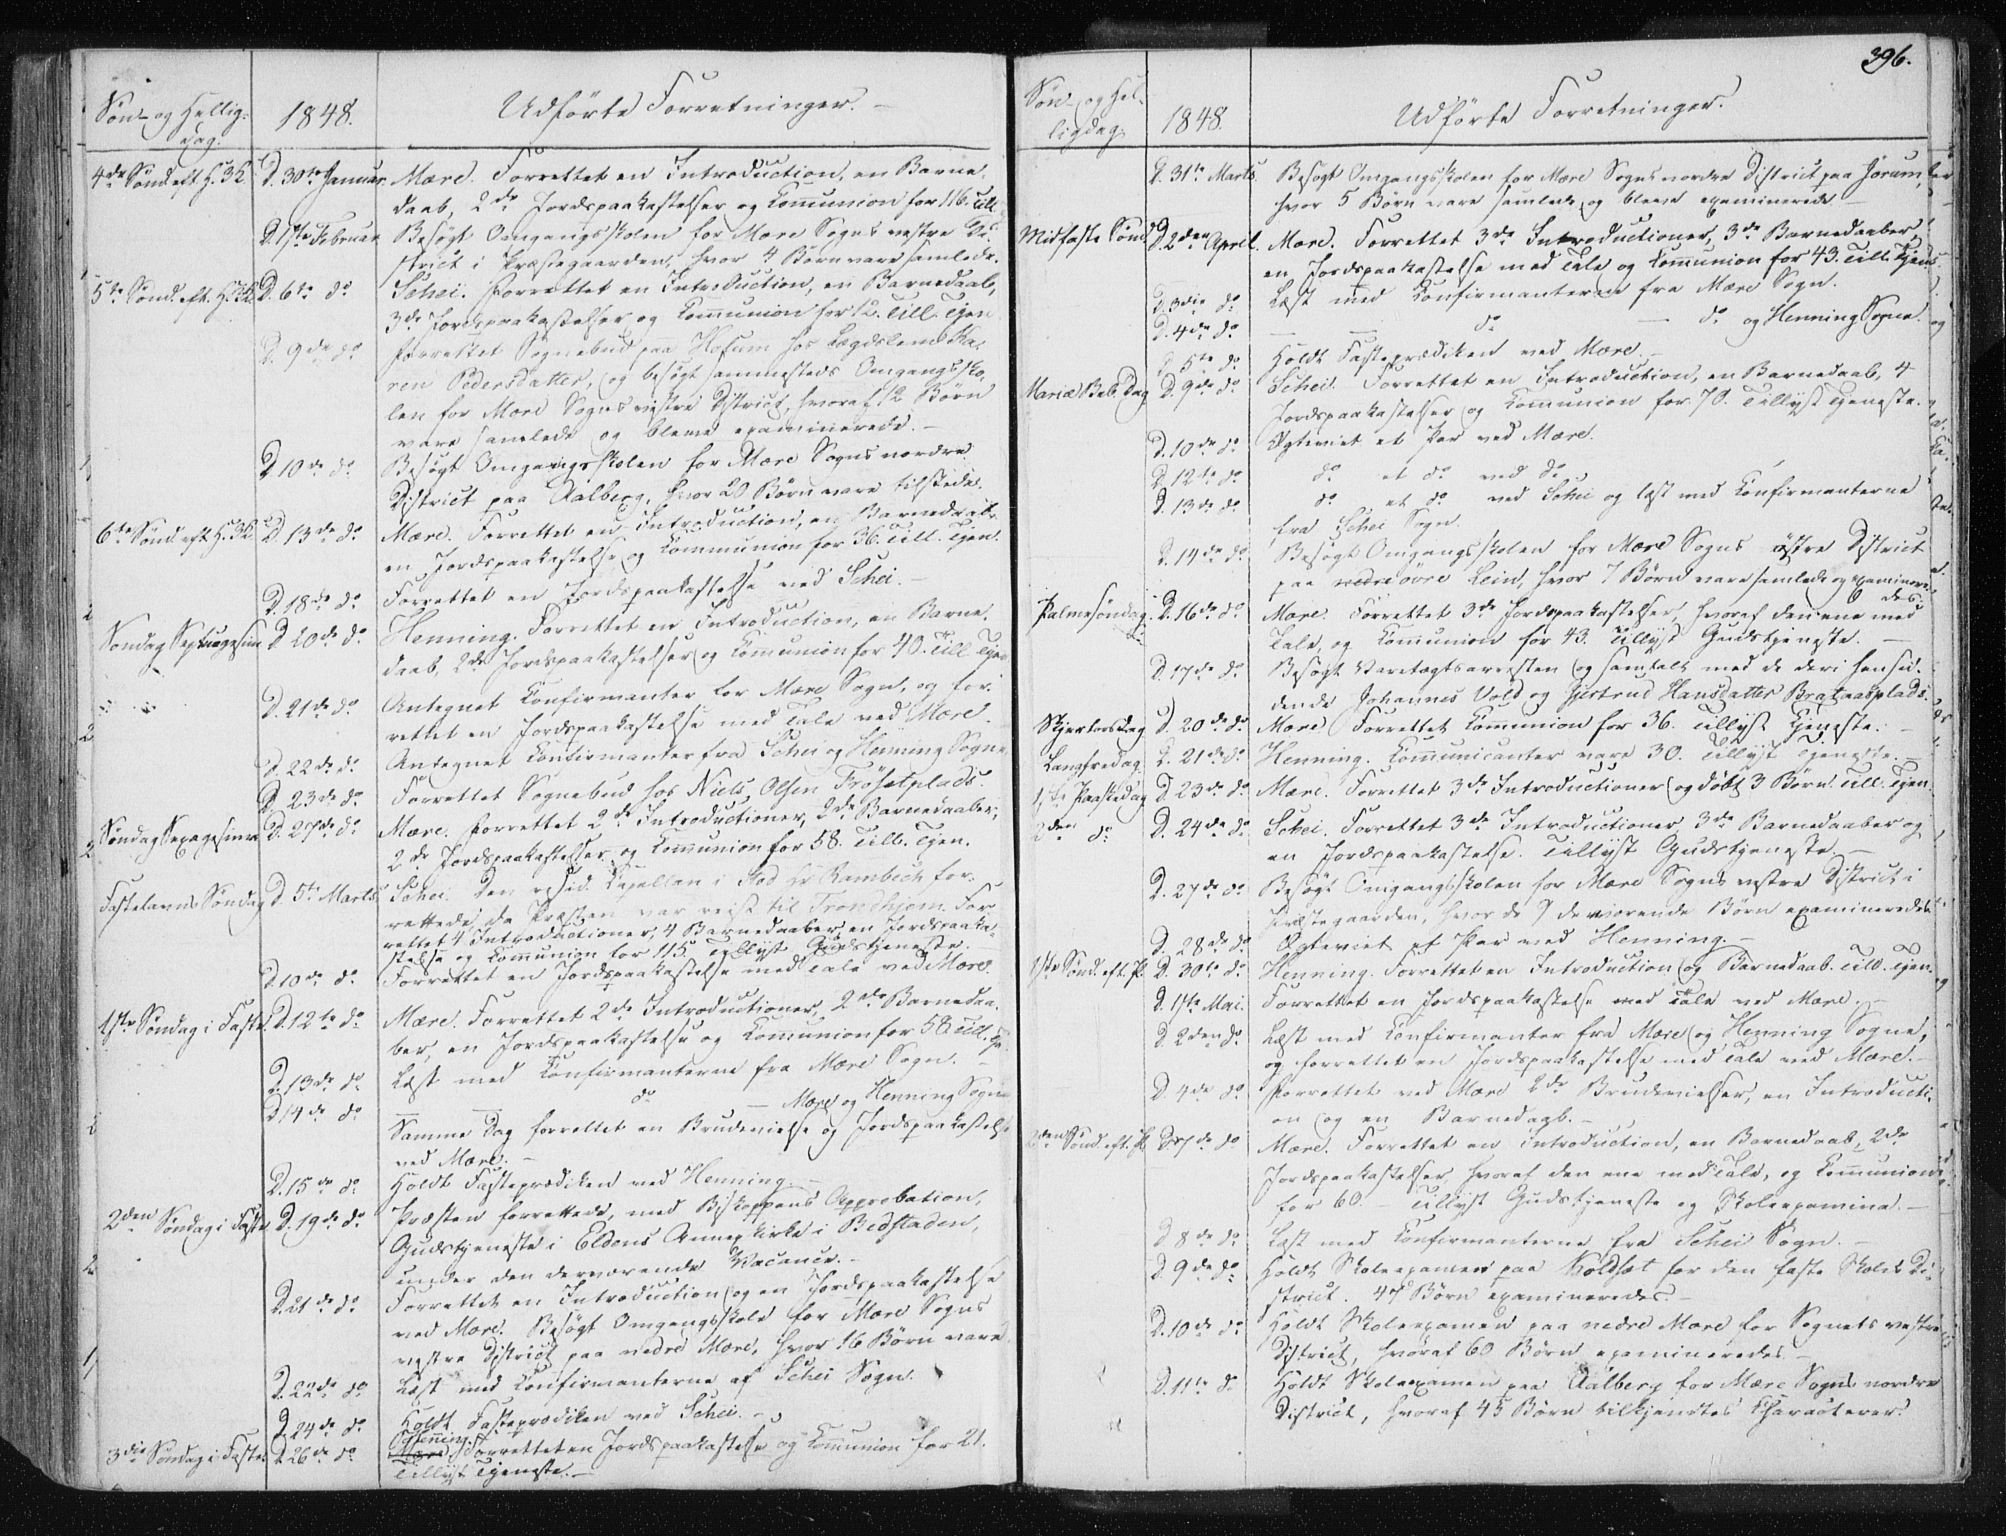 Søn- og Hellig-
dag.
1848.
Udførte Forretninger. -
4de Sønd. eft. H. 3 K.
D. 30te Januar.
Mære. Forrettet en Introduction, en Barne-
daab, 2de Jordspaakastelser og Communion for 116. Till.
D. 1ste Februar
Besøgt Omgangsskolen for Mære Sogns vestre Di-
strict i Præstegaarden, hvor 4 Børn vare samlede.
5te Sønd. eft. H. 3 K.
D. 6te do
Schei. Forrettet en Introduction, en Barnedaab,
3de Jordspaakastelser og Communion for 12. Till. Tjen.
D. 9de do
Forrettet Sognebud paa Hofum hos Lægdslem Ka-
ren Pedersdatter, og besøgt sammesteds Omgangssko-
len for Mære Sogns vestre District, hvoraf 12 Børn
vare samlede og bleve examinerede. -
D. 10de do
Besøgt Omgangsskolen for Mære Sogns nordre
District paa Aalberg, hvor 20 Børn vare tilstede.
6te Sønd. eft. H. 3 K.
D. 13de do
Mære. Forrettet en Introduction, en Barnedaab,
en Jordspaakastelse og Communion for 36. Till. Tjen.
D. 18de do
Forrettet en Jordspaakastelse ved Schei. -
Søndag Septuagesima
D. 20de do
Henning. Forrettet en Introduction, en Barne-
daab, 2de Jordspaakastelser og Communion for 40. Till. Tjen.
D. 21de do
Antegnet Confirmanter for Mære Sogn, og for-
rettet en Jordspaakastelse med Tale ved Mære.
D. 22de do
Antegnet Confirmanter fra Schei og Henning Sogne.
D. 23de do
Forrettet Sognebud hos Niels Olsen Frösetplads.
Søndag Sexagesima
D. 27de do
Mære. Forrettet 2de Introductioner, 2de Barnedaaber,
2de Jordspaakastelser og Communion for 58. Till. Tjen.
Fastelavns Søndag
D. 5te Marts
Schei. Den resid. Capellan i Stod Hr Rambech for-
rettede, da Præsten var reist til Trondhjem. For-
rettet 4 Introductioner, 4 Barnedaaber, en Jordspaaka-
stelse og Communion for 115. Tillyst Gudstjeneste.
D. 10de do
Forrettet en Jordspaakastelse med Tale ved Mære.
1ste Søndag i Faste
D. 12te do
Mære. Forrettet 2de Introductioner, 2de Barnedaa-
ber, en Jordspaakastelse og Communion for 58 Till. Tje.
D. 13de do
Læst med Confirmanterne fra Mære Sogn. -
D. 14de do
— — do — Mære og Henning Sogne
Samme Dag forrettet en Brudevielse og Jordspaakastelse
ved Mære. -
D. 15de do
Holdt Fasteprædiken ved Henning. -
2den Søndag i Faste
D. 19de do
Præsten forrettede, med Biskoppens Approbation,
Gudstjeneste i Eldens Annexkirke i Bedstaden,
under den derværende Vacance. -
D. 21de do
Forrettet en Introduction og en Jordspaakastelse
ved Mære. Besøgt Omgangsskole for Mære Sogns
vestre District paa nedre Mære, hvor 16 Børn vare
D. 22de do
Læst med Confirmanterne af Schei Sogn.
D. 24de do
Holdt Fasteprædiken ved Schei. -
3die Søndag i Faste
D. 26de do
Henning.
Mære. Forrettet en Jordspaakastelse og Communion for 21.
Tillyst Tjeneste. -
396.
Søn- og Hel-
ligdag.
1848.
Udførte Forretninger.
D. 31te Marts
Besøgt Omgangsskolen for Mære Sogns nordre District paa Jörum,
hvor 5 Børn vare samlede og bleve examinerede -
Midfaste Sønd.
D. 2den April.
Mære. Forrettet 3de Introductioner, 3de Barnedaaber,
en Jordspaakastelse med Tale og Communion for 43. Till. Tjen.
D. 3die do
Læst med Confirmanterne fra Mære Sogn.
D. 4de do
— — do — do og Henning Sogne.
D. 5te do
Holdt Fasteprædiken ved Mære. -
Mariæ Beb. Dag
D. 9de do
Schei. Forrettet en Introduction, en Barnedaab, 4
Jordspaakastelser og Communion for 70. Tillyst Tjeneste.
D. 10de do
Ægteviet et Par ved Mære.
D. 12te do
do et do ved do
D. 13de do
do et do ved Schei og læst med Confirmanterne
fra Schei Sogn.
D. 14de do
Besøgt Omgangsskolen for Mære Sogns östre District
paa nedre övre Lein, hvor 7 Børn vare samlede og examinere-
des.
Palmesøndag.
D. 16de do
Mære. Forrettet 3de Jordspaakastelser, hvoraf den ene med
Tale, og Communion for 43. Tillyst Gudstjeneste. -
D. 17de do
Besøgt Varetægtsarresten og samtalt med de deri hensid-
dende Johannes Vold og Gjertrud Hansdatter Brataasplads.
Skjertorsdag
D. 20de do
Mære. Forrettet Communion for 36. Tillyst Tjeneste. -
Langfredag
D. 21de do
Henning. Communicanter vare 30. Tillyst Tjeneste. -
1ste Paaskedag
D. 23de do
Mære. Forrettet 3de Introductioner og döbt 3 Børn. Till. Tjen.
2den do
D. 24de do
Schei. Forrettet 3de Introductioner, 3de Barnedaaber og
en Jordspaakastelse. Tillyst Gudstjeneste. -
D. 27de do
Besøgt Omgangsskolen for Mære Sogns vestre District i
Præstegaarden, hvor de 9 derværende Børn examineredes.
D. 28de do
Ægteviet et Par ved Henning. -
1ste Sønd. eft. P.
D. 30te do
Henning. Forrettet en Introduction og Barnedaab. Till. Tjen.
D. 1ste Mai.
Forrettet en Jordspaakastelse med Tale ved Mære. -
D. 2den do
Læst med Confirmanter fra Mære og Henning Sogne,
og forrettet en Jordspaakastelse med Tale ved Mære. -
D. 4de do
Forrettet ved Mære 2de Brudevielser, en Introducti-
on og en Barnedaab. -
2den Sønd. eft. P.
D. 7de do
Mære. Forrettet en Introduction, en Barnedaab, 2de
Jordspaakastelser, hvoraf den ene med Tale, og Communion
for 60. - Tillyst Gudstjeneste og Skoleexamina. -
D. 8de do
Læst med Confirmanterne fra Schei Sogn. -
D. 9de do
Holdt Skoleexamen paa Koldset for den faste Skoles Di-
strict. 47 Børn examineredes. -
D. 10de do
Holdt Skoleexamen paa nedre Mære for Sognets vestre
District, hvoraf 60 Børn examineredes. -
D. 11te do
Holdt Skoleexamen paa Aalberg for Mære Sogns nordre
District, hvoraf 45 Børn tilkjendtes Characterer.